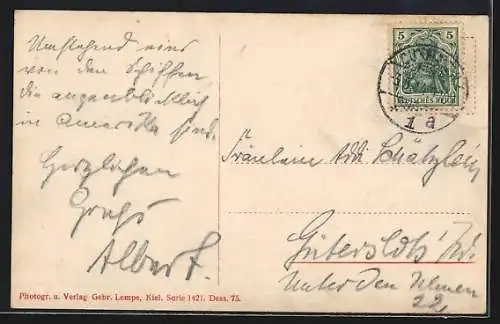 Umstehend eines
von den Schiffen,
die augenblicklich
in Amerika sind.
Herzlichen
Gruß
Albert.
5 5
DEUTSCHES REICH
1 a
Fräulein
Gütersloh
Unter den Ulmen
22
Photogr. u. Verlag Gebr. Lempe, Kiel. Serie 1421. Dess. 75.